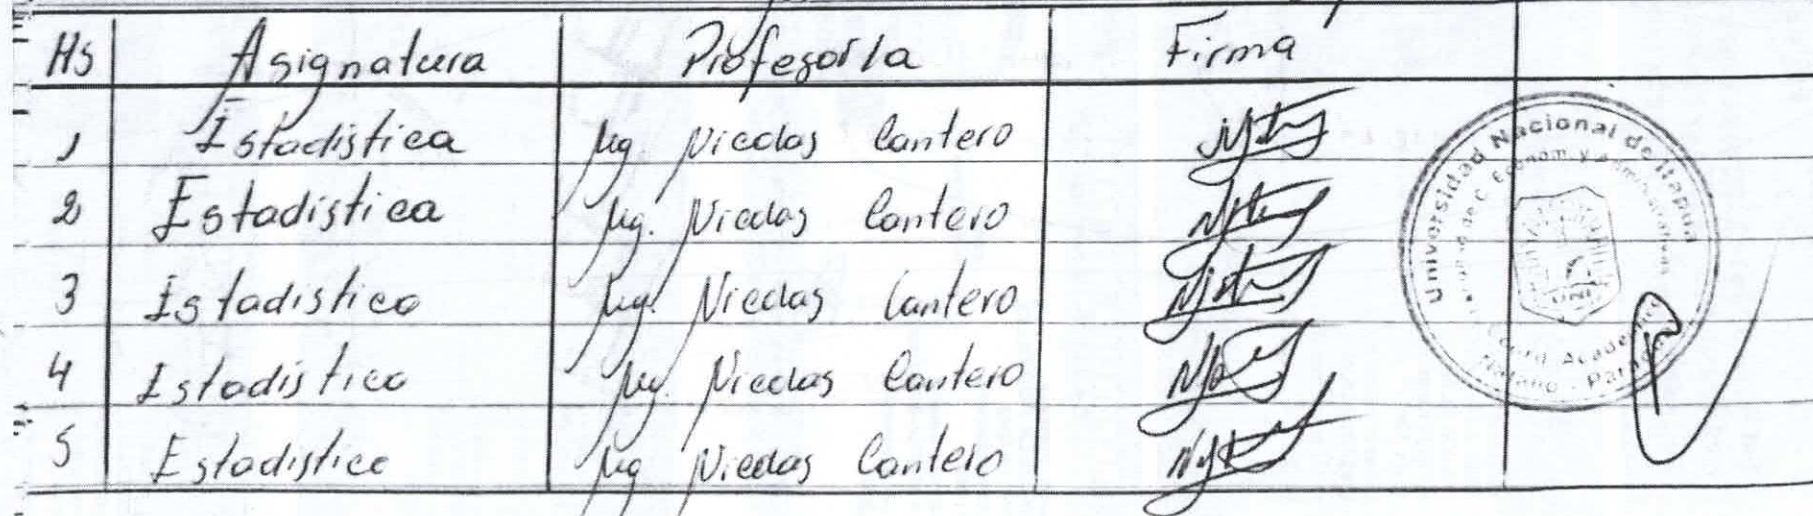 Hs Asignatura Profesor/a Firma
1 Estadistica Mg. Nicolas Cantero
2 Estadistica Mg. Nicolas Cantero
3 Estadistica Mg. Nicolas Cantero
4 Estadistica Mg. Nicolas Cantero
5 Estadistica Mg Nicolas Cantero
Universidad Nacional de Itapúa
de C. Econom. y Administrativas
UNI